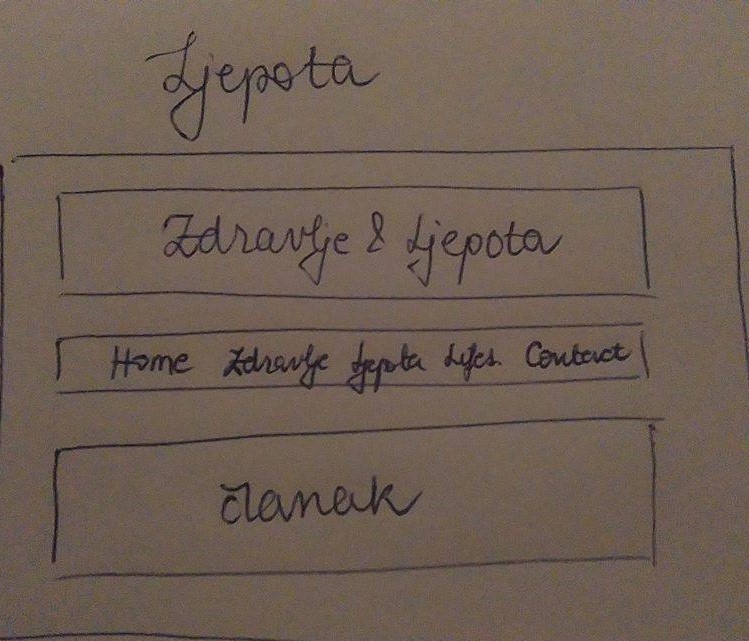 Ljepota
Zdravlje & Ljepota
Home Zdravlje Ljepota Lifes. Contact
članak